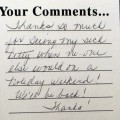 Your Comments...
Thanks so much
for seeing my sick
kitty when no one
else would on a
holiday weekend!
We'll be back!
Thanks!